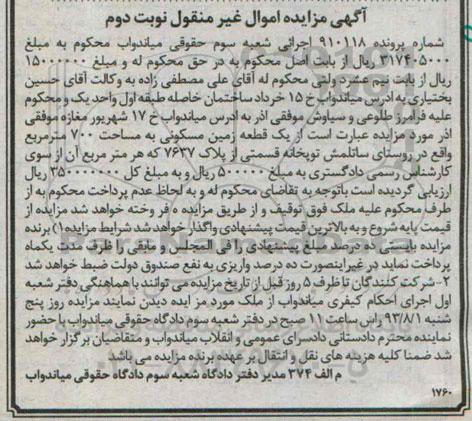 آگهی مزایده اموال غیر منقول نوبت دوم
شماره پرونده ۹۱۰۱۱۸ اجرائی شعبه سوم حقوقی میاندواب محکوم به مبلغ
۳۱۷۴۰۵۰۰۰ ریال از بابت اصل محکوم به در حق محکوم له و مبلغ ۱۵۰۰۰۰۰۰
ریال از بابت نیم عشر دولتی محکوم له آقای علی مصطفی زاده به وکالت آقای حسین
بختیاری به ادرس میاندواب خ ۱۵ خرداد ساختمان خاصله طبقه اول واحد یک و محکوم
علیه فرامرز طلوعی و سیاوش موفقی اذر به ادرس میاندواب خ ۱۷ شهریور مغازه موفقی
اذر مورد مزایده عبارت است از یک قطعه زمین مسکونی به مساحت ۷۰۰ مترمربع
واقع در روستای ساتلمش توپخانه قسمتی از پلاک ۷۶۳۷ که هر متر مربع آن از سوی
کارشناس رسمی دادگستری به مبلغ ۵۰۰۰۰۰ ریال و به مبلغ کل ۳۵۰۰۰۰۰۰۰ ریال
ارزیابی گردیده است باتوجه به تقاضای محکوم له و به لحاظ عدم پرداخت محکوم به از
طرف محکوم علیه ملک فوق توقیف و از طریق مزایده ه فر وخته خواهد شد مزایده از
قیمت پایه شروع و به بالاترین قیمت پیشنهادی واگذار خواهد شد شرایط مزایده ۱) برنده
مزایده بایستی ده درصد مبلغ پیشنهادی را فی المجلس و مابقی را ظرف مدت یکماه
پرداخت نماید در غیر اینصورت ده درصد واریزی به نفع صندوق دولت ضبط خواهد شد
۲-شرکت کنندگان تا ظرف ۵ روز قبل از تاریخ مزایده می توانند با هماهنگی دفتر شعبه
اول اجرای احکام کیفری میاندواب از ملک مورد مز ایده دیدن نمایند مزایده روز پنج
شنبه ۹۳/۸/۱ راس ساعت ۱۱ صبح در دفتر شعبه سوم دادگاه حقوقی میاندواب با حضور
نماینده محترم دادستانی دادسرای عمومی و انقلاب میاندواب و متقاضیان برگزار خواهد
شد ضمنا کلیه هزینه های نقل و انتقال بر عهده برنده مزایده می باشد
م الف ۳۷۴ مدیر دفتر دادگاه شعبه سوم دادگاه حقوقی میاندواب
۱۷۶۰